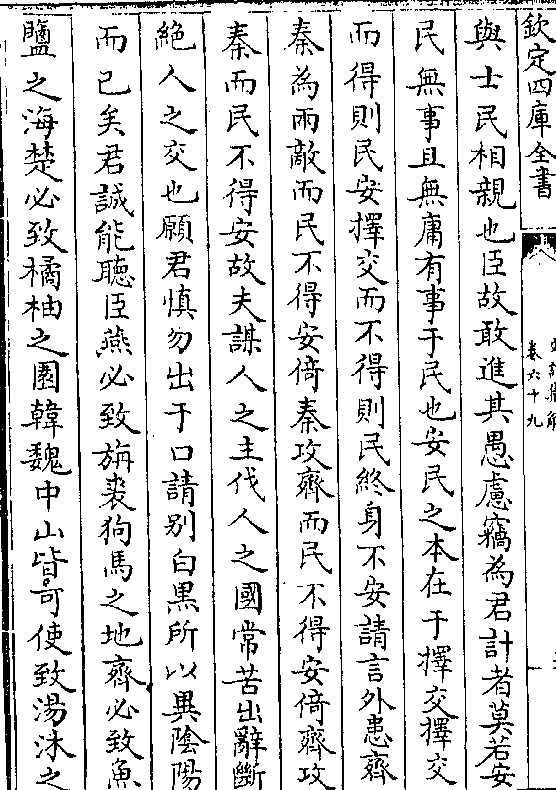 欽定四庫全書
卷六十九
與士民相親也臣故敢進其愚慮竊為君計者莫若安
民無事且無庸有事于民也安民之本在于擇交擇交
而得則民安擇交而不得則民終身不安請言外患齊
秦為兩敵而民不得安倚秦攻齊而民不得安倚齊攻
秦而民不得安故夫謀人之主伐人之國常苦出辭斷
絶人之交也願君慎勿出于口請别白黒所以異陰陽
而已矣君誠能聽臣燕必致旃裘狗馬之地齊必致魚
鹽之海楚必致橘柚之園韓魏中山皆可使致湯沐之